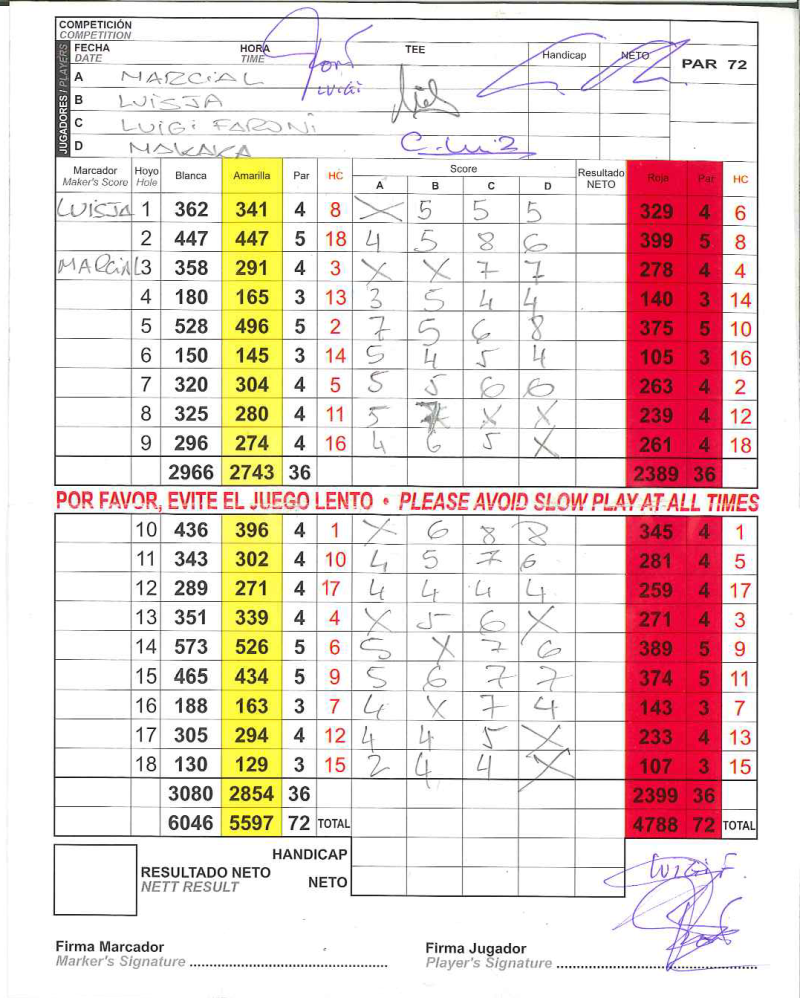 COMPETICIÓN
COMPETITION
FECHA HORA TEE Handicap NETO PAR 72
DATE TIME
JUGADORES / PLAYERS
A MARCIAL
B LUISJA
C LUIGI FARONI
D MAKAKA
LUIGI
C. Luiz
Marcador Hoyo Blanca Amarilla Par HC Score Resultado Roja Par HC
Maker's Score Hole A B C D NETO
LUISJA 1 362 341 4 8 X 5 5 5 329 4 6
2 447 447 5 18 4 5 8 6 399 5 8
MARCIAL 3 358 291 4 3 X X 7 7 278 4 4
4 180 165 3 13 3 5 4 4 140 3 14
5 528 496 5 2 7 5 6 8 375 5 10
6 150 145 3 14 5 4 5 4 105 3 16
7 320 304 4 5 5 5 6 6 263 4 2
8 325 280 4 11 5 X X 239 4 12
9 296 274 4 16 4 6 5 X 261 4 18
2966 2743 36 2389 36
POR FAVOR, EVITE EL JUEGO LENTO • PLEASE AVOID SLOW PLAY AT ALL TIMES
10 436 396 4 1 X 6 8 8 345 4 1
11 343 302 4 10 4 5 7 6 281 4 5
12 289 271 4 17 4 4 4 4 259 4 17
13 351 339 4 4 X 5 6 X 271 4 3
14 573 526 5 6 5 X 7 6 389 5 9
15 465 434 5 9 5 6 7 7 374 5 11
16 188 163 3 7 4 X 7 4 143 3 7
17 305 294 4 12 4 4 5 X 233 4 13
18 130 129 3 15 2 4 4 X 107 3 15
3080 2854 36 2399 36
6046 5597 72 TOTAL 4788 72 TOTAL
HANDICAP
RESULTADO NETO
NETT RESULT NETO
LUIGI F.
Firma Marcador Firma Jugador
Marker's Signature Player's Signature